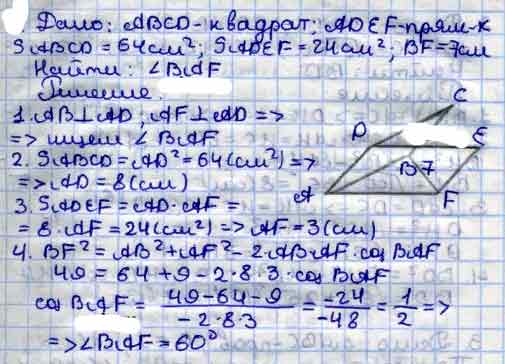 Дано: ABCD-квадрат; ADEF-прям-к
SABCD = 64см²; SADEF = 24см²; BF = 7см
Найти: ∠BAF
Решение.
1. AB⊥AD; AF⊥AD =>
=> ищем ∠BAF
2. SABCD = AD² = 64(см²) =>
=> AD = 8(см)
3. SADEF = AD·AF =
= 8·AF = 24(см²) => AF = 3(см)
4. BF² = AB² + AF² - 2·AB·AF·cos BAF
49 = 64 + 9 - 2·8·3·cos BAF
cos BAF = (49-64-9)/(-2·8·3) = -24/-48 = 1/2 =>
=> ∠BAF = 60°
C
D
E
B 7
A
F